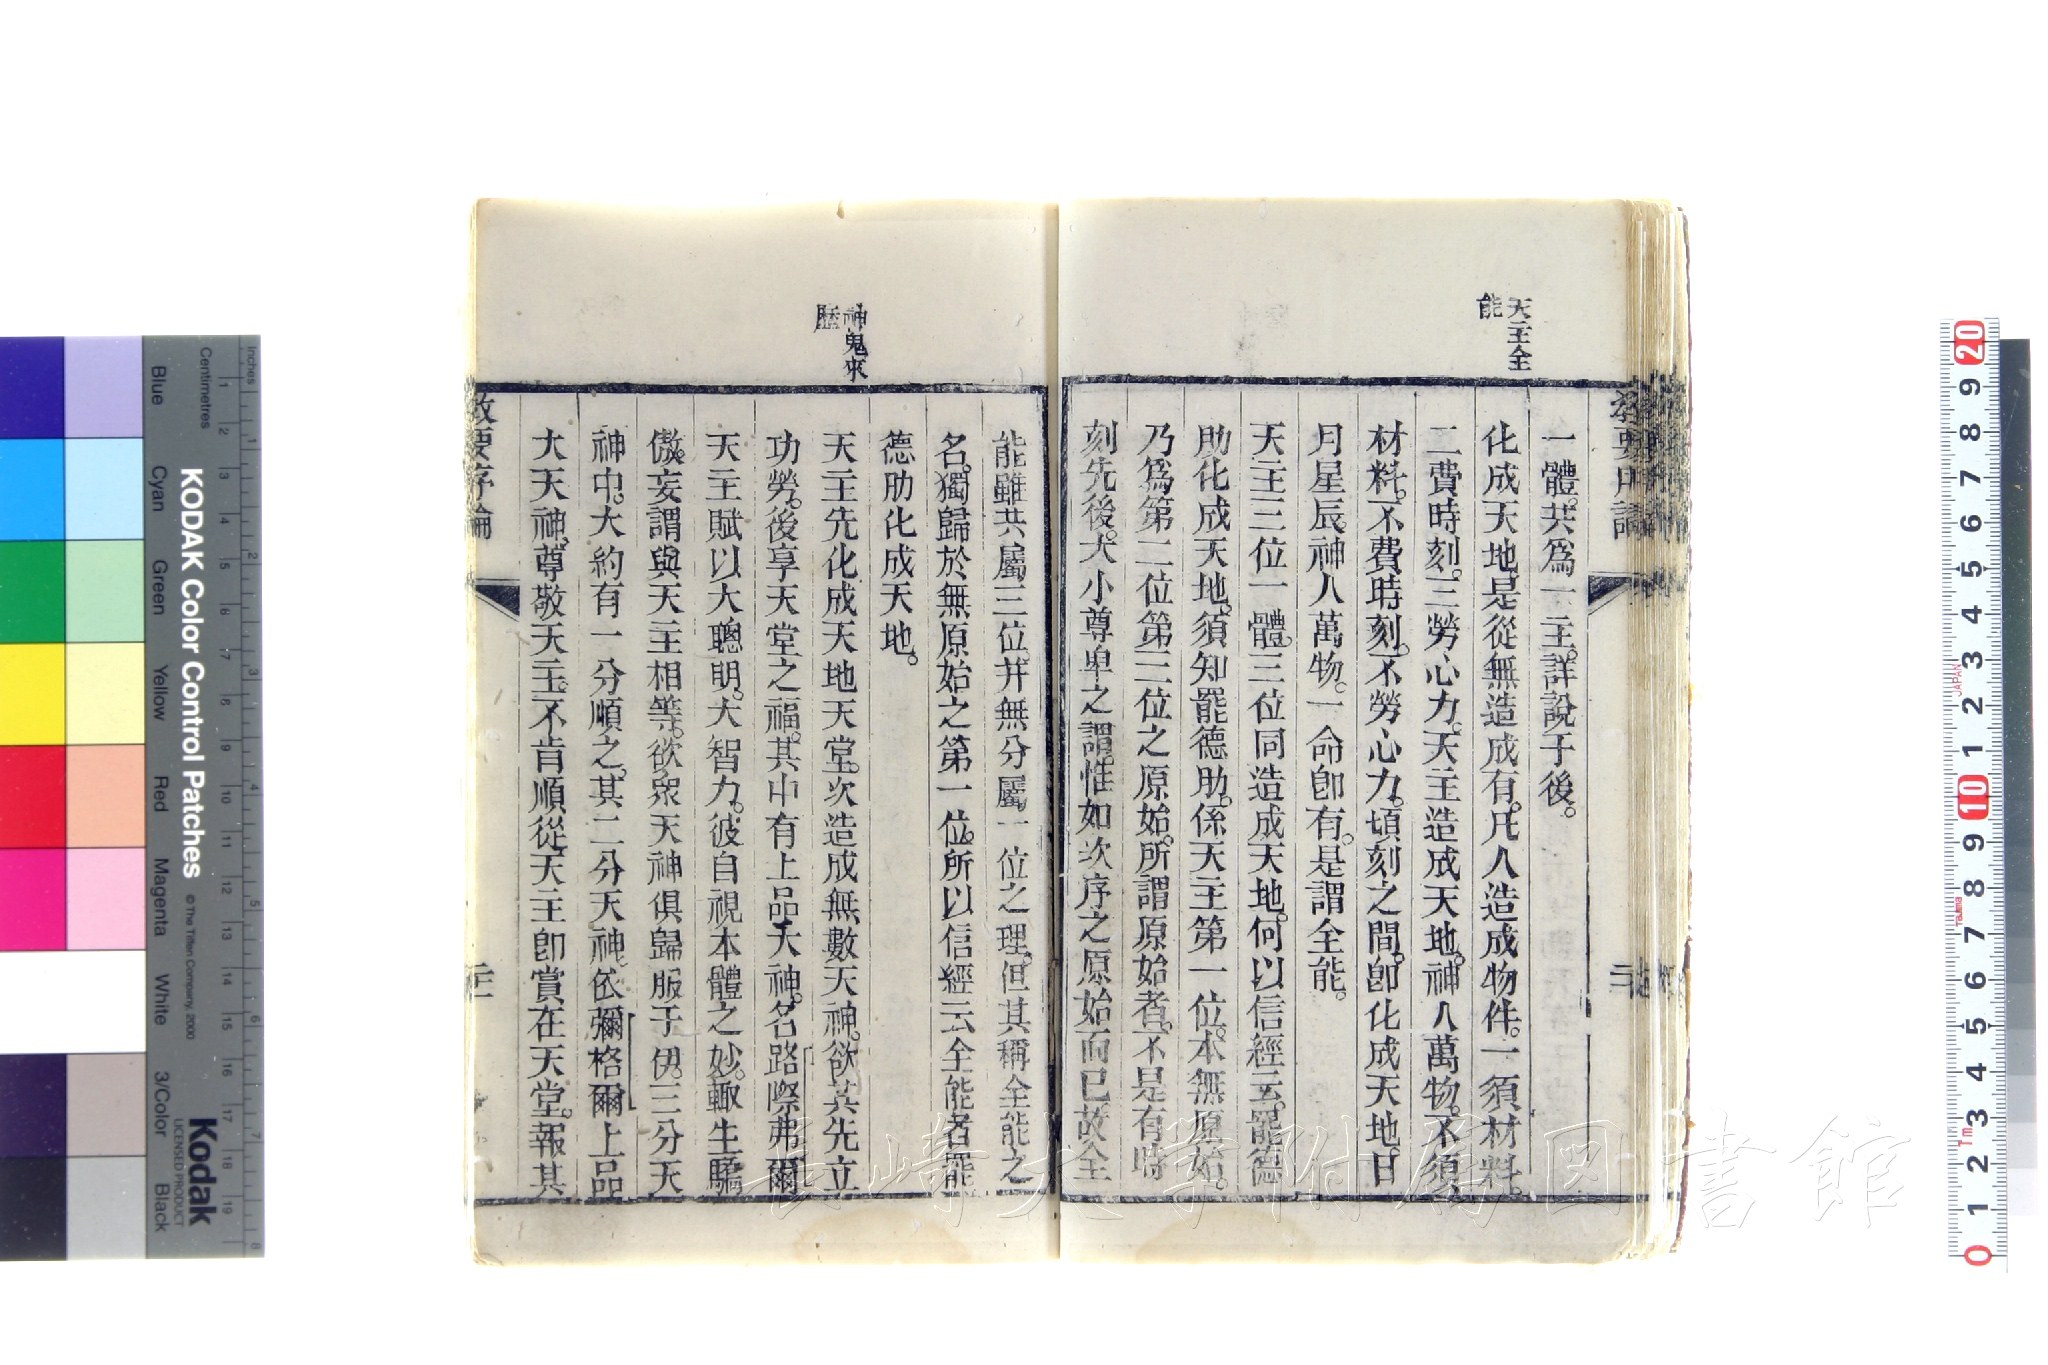 天主全
能
一體。共爲一主。詳說于後。
化成天地是從無造成有。凡人造成物件。一須材料。
二費時刻。三勞心力。天主造成天地。神人萬物。不須
材料。不費時刻。不勞心力。頃刻之間。即化成天地。日
月星辰。神人萬物。一命即有。是謂全能。
天主三位一體。三位同造成天地。何以信經云。罷德
助化成天地。須知罷德助。係天主第一位。本無原始。
乃爲第二位第三位之原始。所謂原始者。不是有時
刻先後。大小尊卑之謂。惟如次序之原始而已故全
神鬼來
歷
能雖共屬三位。并無分屬一位之理。但其稱全能之
名。獨歸於無原始之第一位。所以信經云全能者罷
德肋化成天地。
天主先化成天地天堂。次造成無數天神。欲其先立
功勞。後享天堂之福。其中有上品大神。名路際弗爾
天主賦以大聰明。大智力。彼自視本體之妙。輙生驕
傲。妄謂與天主相等。欲衆天神俱歸服于伊。三分天
神中。大約有一分順之。其二分天神。依彌格爾上品
大天神。尊敬天主。不肯順從。天主即賞在天堂。報其
教要序論
二十一
KODAK Color Control Patches
© The Tiffen Company, 2000
Kodak
LICENSED PRODUCT
Blue
Cyan
Green
Yellow
Red
Magenta
White
3/Color
Black
Inches
Centimetres
長崎大学附属図書館
JAPAN